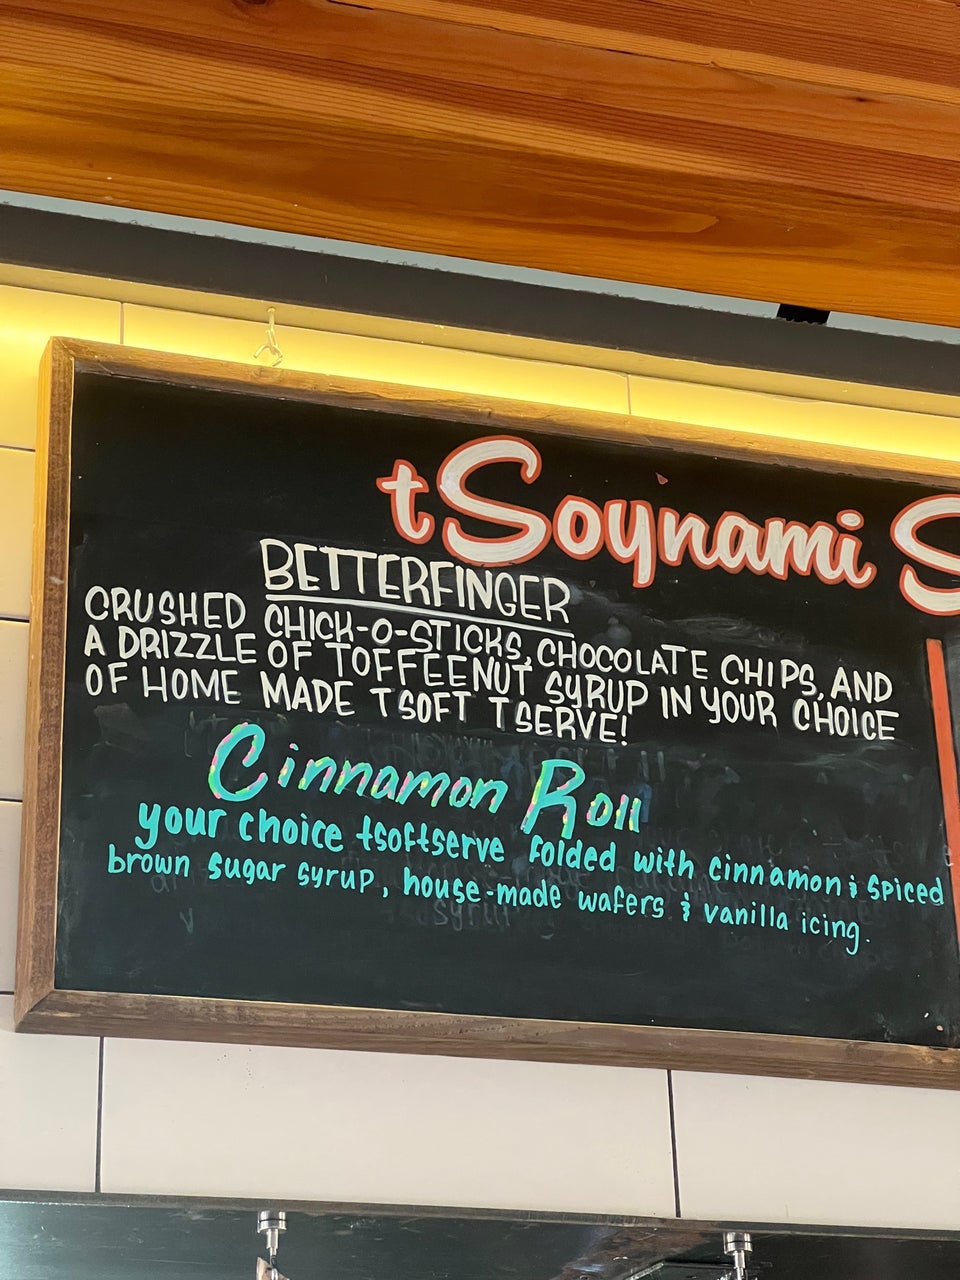 tSoynami S
BETTERFINGER
CRUSHED CHICK-O-STICKS, CHOCOLATE CHIPS, AND
A DRIZZLE OF TOFFEENUT SYRUP IN YOUR CHOICE
OF HOME MADE TSOFT TSERVE!
Cinnamon Roll
your choice tsoftserve folded with cinnamon & spiced
brown sugar syrup, house-made wafers & vanilla icing.